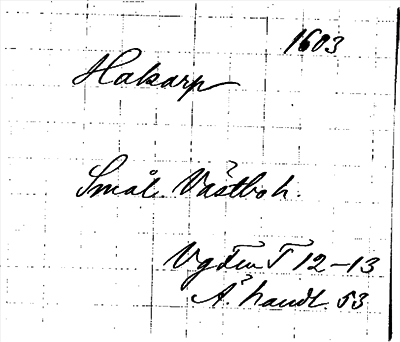 1603
Hakarp
Smål. Västboh.
Vg tem T 12-13
Ä. handl. 53